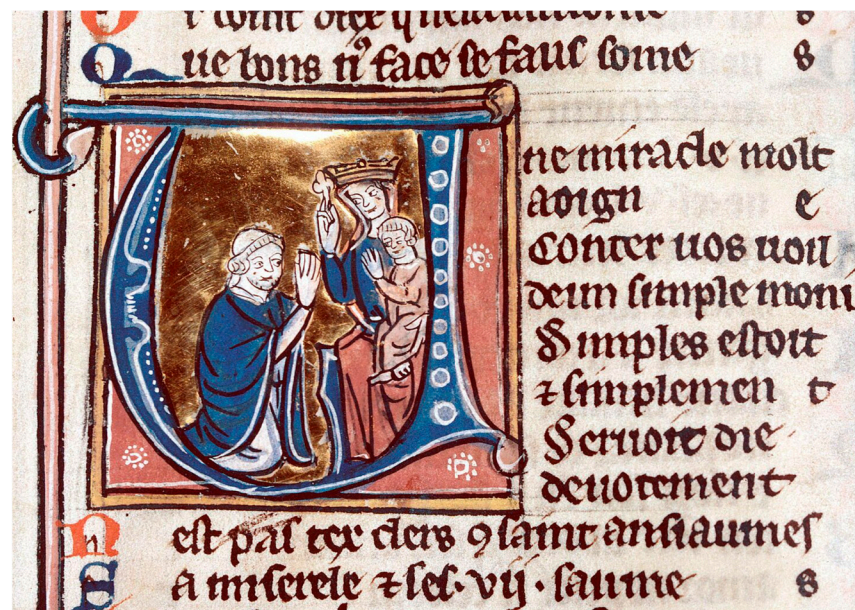 Que bons nꝰ face se faus some s
Une miracle molt
aoign e
Conter uos uoil
deun simple moni
Simples estoit
⁊ simplemen t
Seruoit die
deuotement
Nest pas tex clers ꝯ saint ansiaumes
Sa miserele ⁊ ses · vij · saume s